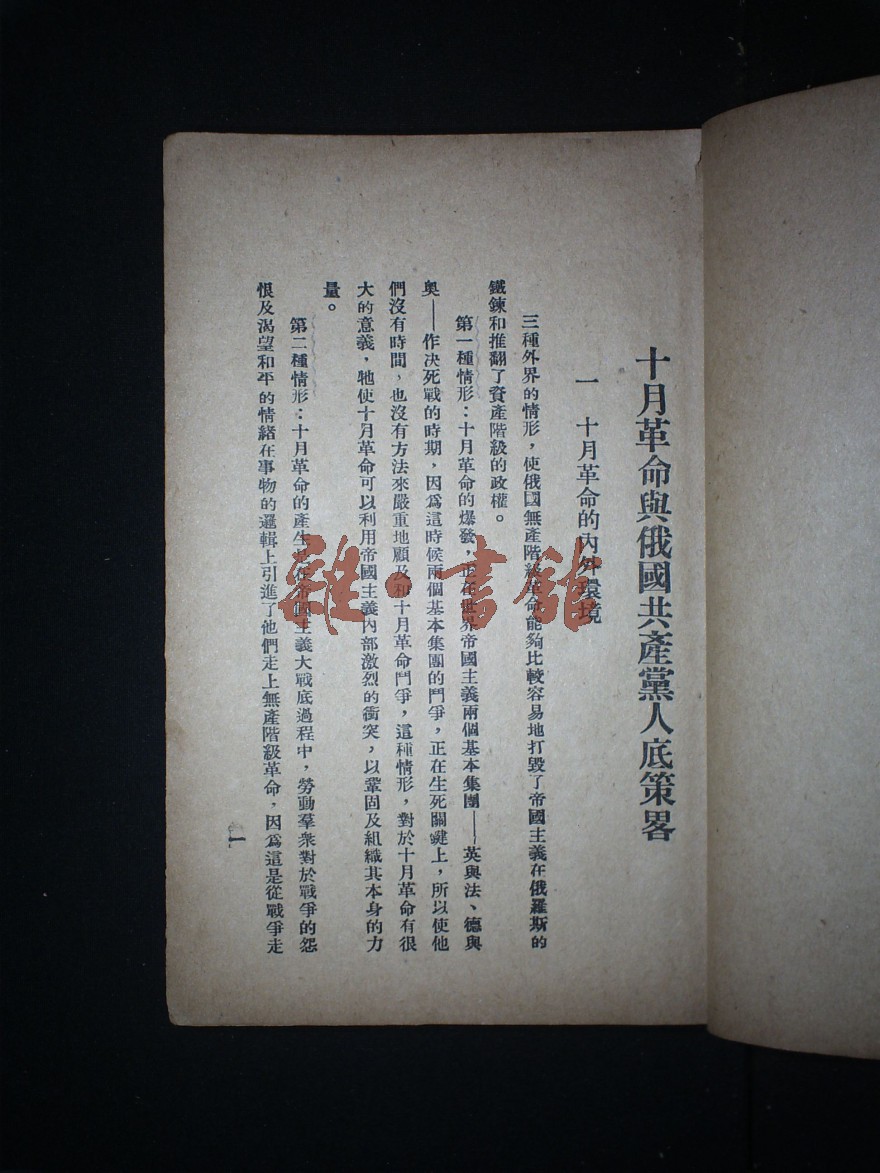 十月革命與俄國共產黨人底策畧
一　十月革命的內外環境
三種外界的情形，使俄國無產階級革命能夠比較容易地打毀了帝國主義在俄羅斯的
鐵鍊和推翻了資產階級的政權。
第一種情形：十月革命的爆發，正在世界帝國主義兩個基本集團——英與法、德與
奧——作決死戰的時期，因爲這時候兩個基本集團的鬥爭，正在生死關鍵上，所以使他
們沒有時間，也沒有方法來嚴重地顧及和十月革命鬥爭，這種情形，對於十月革命有很
大的意義，牠使十月革命可以利用帝國主義內部激烈的衝突，以鞏固及組織其本身的力
量。
第二種情形：十月革命的產生是在帝國主義大戰底過程中，勞動羣衆對於戰爭的怨
恨及渴望和平的情緒在事物的邏輯上引進了他們走上無產階級革命，因爲這是從戰爭走
1
雜·書館